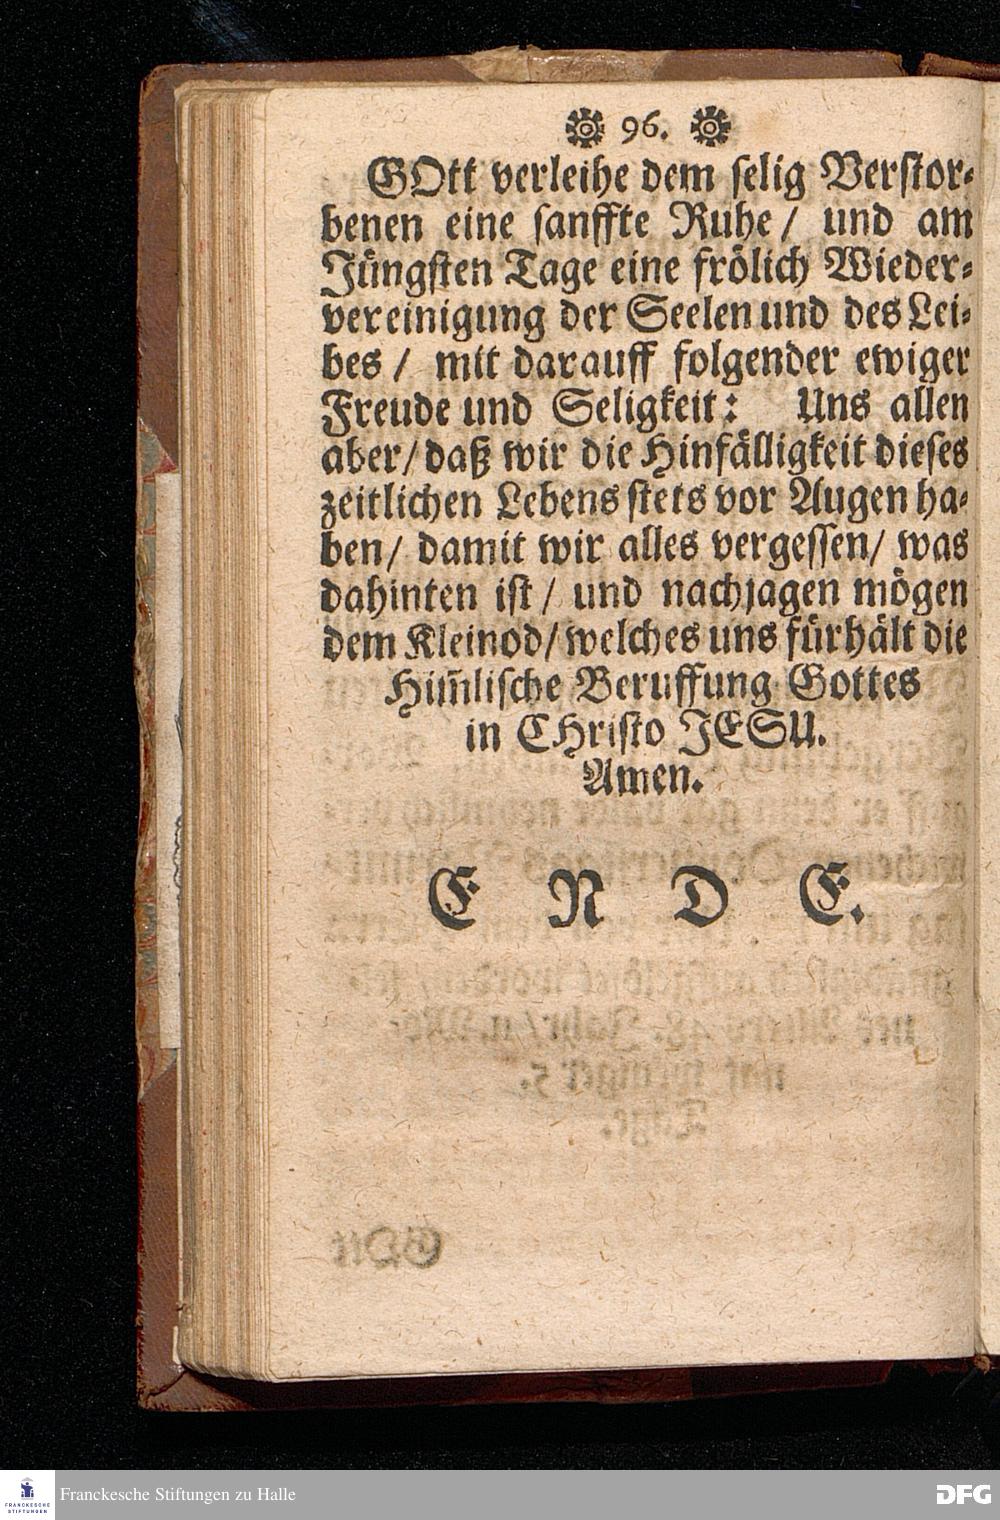 96.
GOtt verleihe dem selig Verstor-
benen eine sanffte Ruhe / und am
Jüngsten Tage eine frölich Wieder-
vereinigung der Seelen und des Lei-
bes / mit darauff folgender ewiger
Freude und Seligkeit: Uns allen
aber / daß wir die Hinfälligkeit dieses
zeitlichen Lebens stets vor Augen ha-
ben / damit wir alles vergessen / was
dahinten ist / und nachjagen mögen
dem Kleinod / welches uns fürhält die
Him̃lische Beruffung Gottes
in CHristo JESU.
Amen.
E N D E.
FRANCKESCHE
STIFTUNGEN
Franckesche Stiftungen zu Halle
DFG